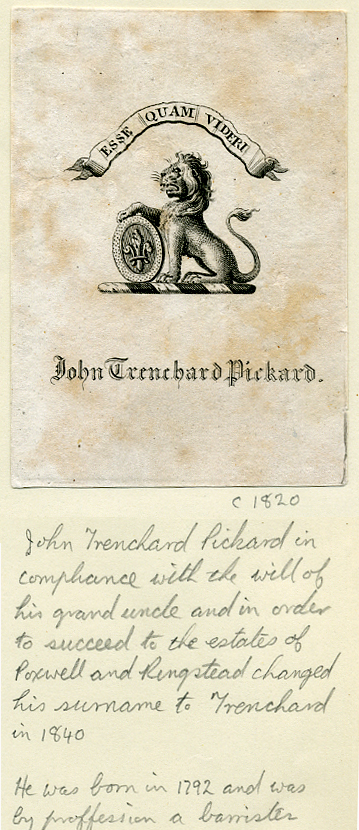 ESSE QUAM VIDERI
John Trenchard Pickard.
c 1820
John Trenchard Pickard in
compliance with the will of
his grand uncle and in order
to succeed to the estates of
Poxwell and Ringstead changed
his surname to Trenchard
in 1840
He was born in 1792 and was
by proffession a barrister